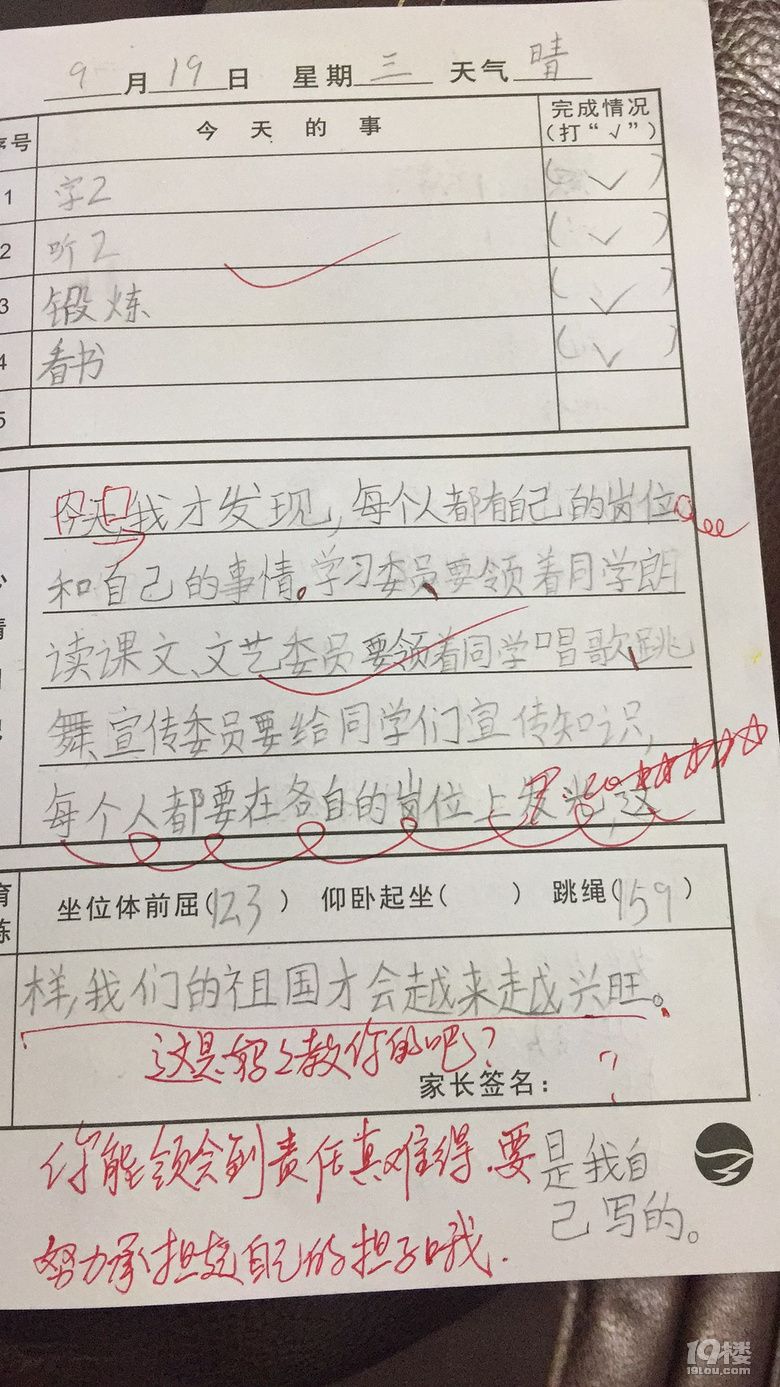 9月19日 星期三 天气晴
序号 今天的事 完成情况
(打“√”)
1 字2 (✓)
2 听2 (✓)
3 锻炼 (✓)
4 看书 (✓)
5
今天,我才发现,每个人都有自己的岗位
和自己的事情。学习委员要领着同学朗
读课文、文艺委员要领着同学唱歌、跳
舞、宣传委员要给同学们宣传知识,
每个人都要在各自的岗位上发光,这
坐位体前屈(123) 仰卧起坐( ) 跳绳(159)
样,我们的祖国才会越来越兴旺。
这是妈妈教你的吧?
家长签名: ?
你能领会到责任真难得.要
是我自
己写的。
努力承担起自己的担子哦.
19楼
19lou.com